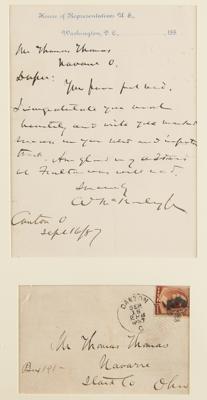 House of Representatives U. S.,
Washington, D. C., 188
Mr Thomas Thomas
Navarre O.
Dr Sir:
Your favor just recd.
I congratulate you most
heartily and wish you
success in your new and
Am glad my address
at Fulton was well recd.
Sincerely
Wm McKinley Jr
Canton O
Sept 16/87
CANTON
SEP
O.
Mr Thomas Thomas
Navarre
Stark Co Ohio
Box 191